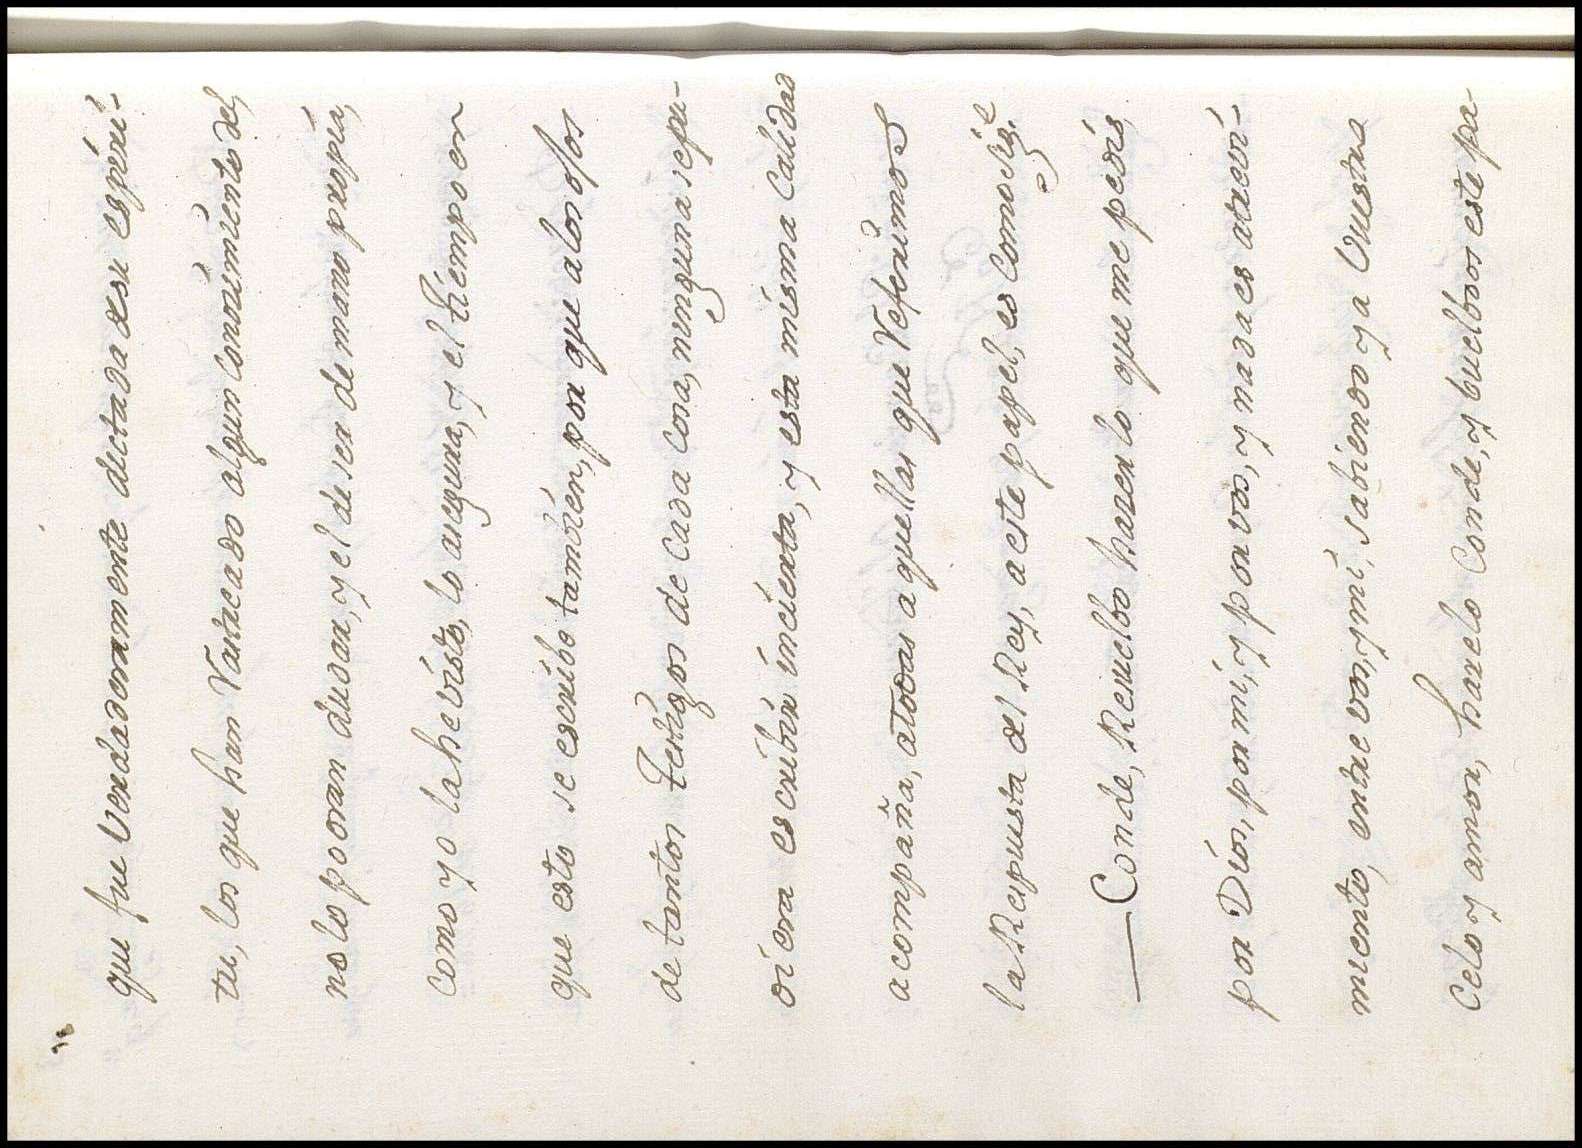 que fue verdaderamente dictada de su espiri-
tu, los que han Vastreado algun conosimiento del,
no lo podran dudar, y el de ser de mano propia,
como yo la he visto, lo asegura, y el tiempo en
que esto se escribe tambien, por que a los ojos
de tantos testigos de cada cosa, ninguna se pu-
diera escribir incierta, y esta misma calidad
acompaña, a todas aquellas que Referimos
la Respuesta del Rey, a este papel, es como sig.e
— Conde, Resuelbo hazer lo que me pedis
por Dios, por mi, y por vos, y nada es atrevi-
miento, entre vos, y mi, sabiendo yo a Vuestro
Celo y amor, harelo Conde, y buelboos este pa-